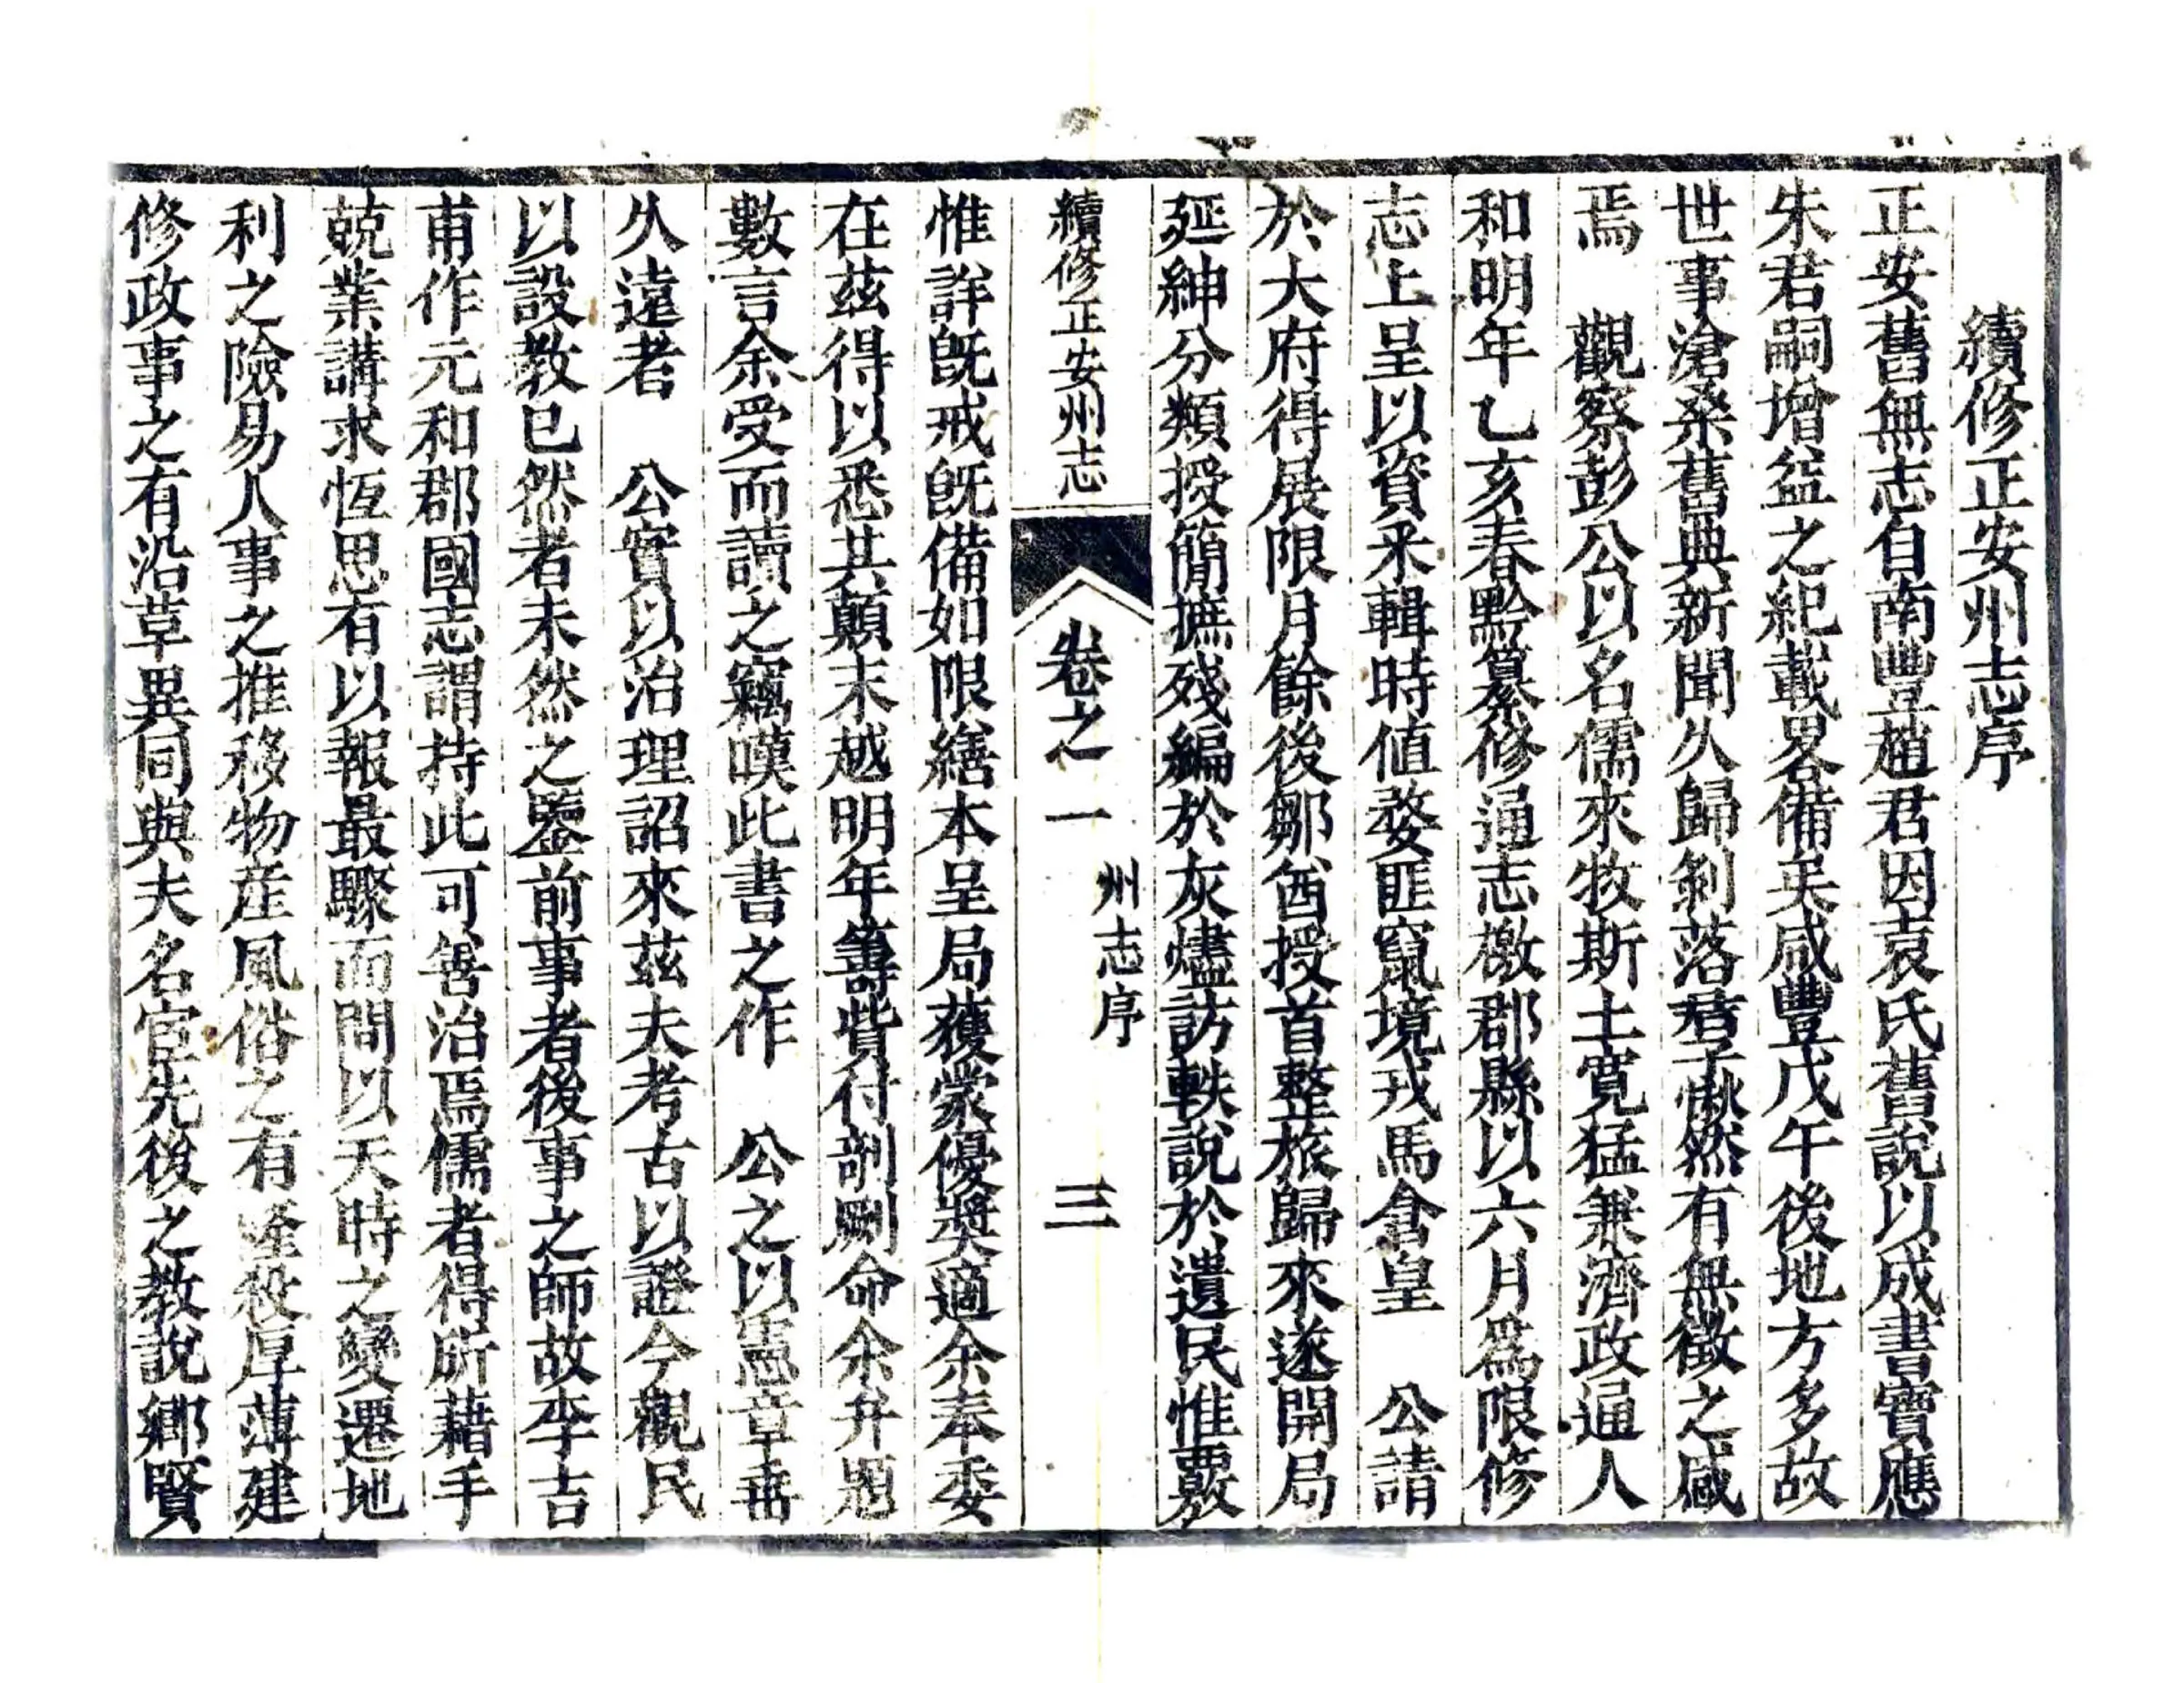 續修正安州志序
正安舊無志自南豐趙君因袁氏舊說以成書寶應
朱君嗣增益之紀載畧備矣咸豐戊午後地方多故
世事滄桑舊典新聞久歸剝落君子愀然有無徵之感
焉　觀察彭公以名儒來牧斯土寬猛兼濟政通人
和明年乙亥春黔纂修通志檄郡縣以六月爲限修
志上呈以資采輯時値婺匪竄境戎馬倉皇　公請
於大府得展限月餘後鄒酋授首整旅歸來遂開局
延紳分類授簡摭殘編於灰燼訪軼說於遺民惟覈
續修正安州志　卷之一　州志序　三
惟詳旣戒旣備如限繕本呈局獲蒙優奬適余奉委
在茲得以悉其顛末越明年籌貲付剞劂命余弁題
數言余受而讀之竊嘆此書之作　公之以憲章垂
久遠者　公實以治理詔來茲夫考古以證今觀民
以設教已然者未然之鑒前事者後事之師故李吉
甫作元和郡國志謂持此可善治焉儒者得所藉手
兢業講求恆思有以報最驟而間以天時之變遷地
利之險易人事之推移物産風俗之有隆殺厚薄建
修政事之有沿革異同與夫名宦先後之教說鄉賢